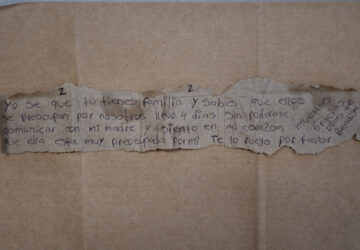 2 2
Yo se que tu tienes familia y sabes que ellos
se preocupan por nosotros llevo 4 dias sin poderme
comunicar con mi madre y siento en mi corazon
que ella esta muy preocupada por mi Te lo ruego por favor
muchas
gracias
Dios te
bendiga